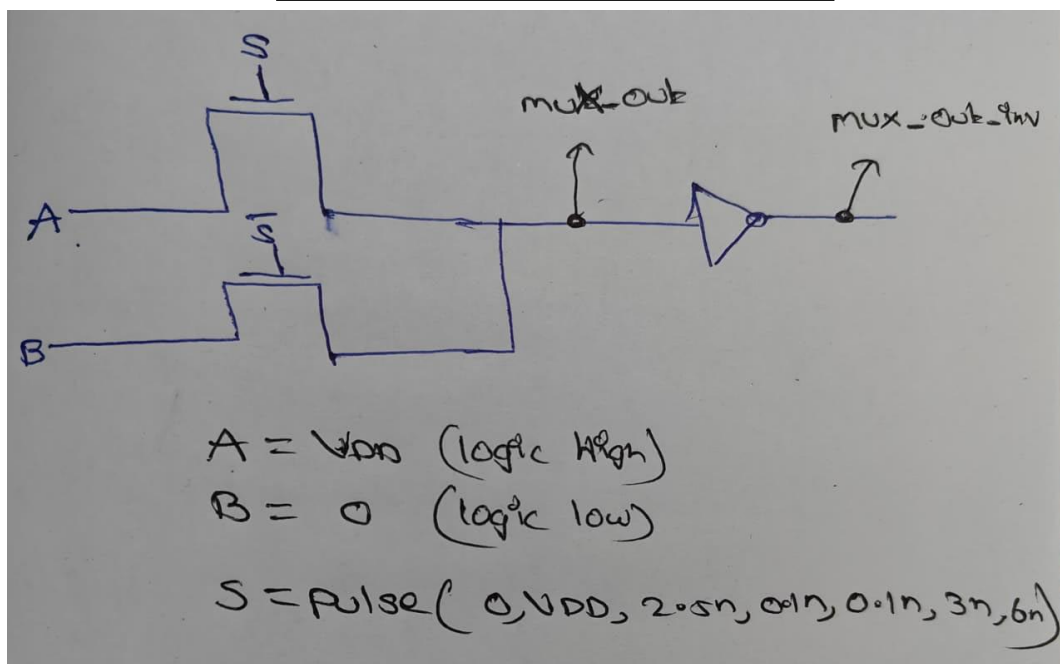 S
mux-out
mux-out-inv
A
S̅
B
A = VDD (logic High)
B = 0 (logic low)
S = pulse( 0, VDD, 2.5n, 0.1n, 0.1n, 3n, 6n)